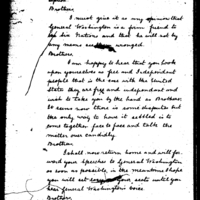 Brother.
I must give it as my opinion that
General Washington is a firm friend to
the Six Nations and that he will not by
any means wronged.
Brother.
I am happy to hear that you look
upon yourselves as free and Independent
people that is the one with the United
States they are free and independent and
wish to take you by the hand as Brothers.
It seems now there is some disputes but
the only way to have it settled is to
come together, face to face and talk the
matter over candidly.
Brother
I shall now return home and will for-
ward your speeches to General Washington
as soon as possible, in the meantime I hope
you will set your seats until you
hear General Washington's voice.
Brother.